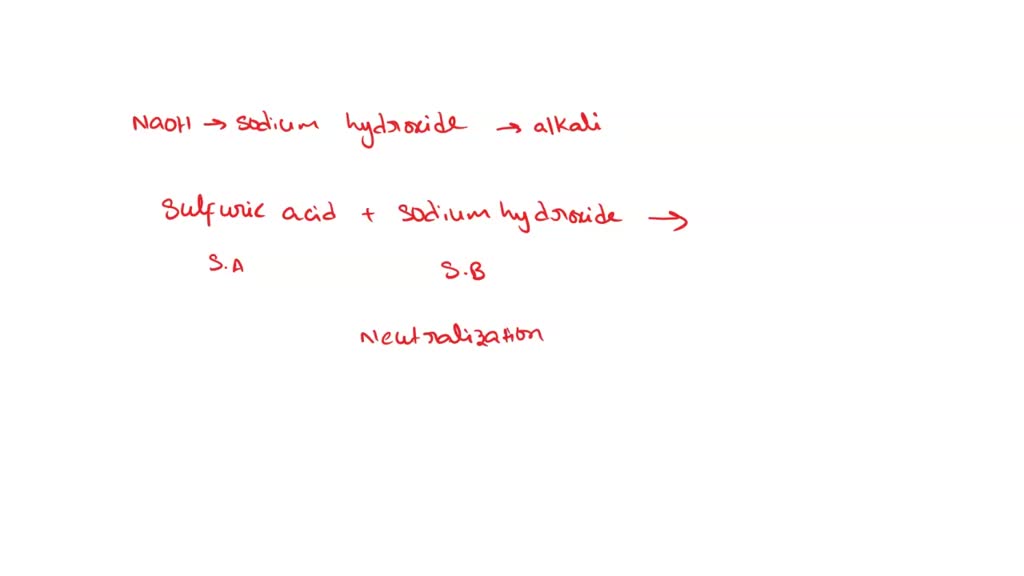 NaOH → sodium hydroxide → alkali
Sulfuric acid + sodium hydroxide →
S.A S.B
Neutralization